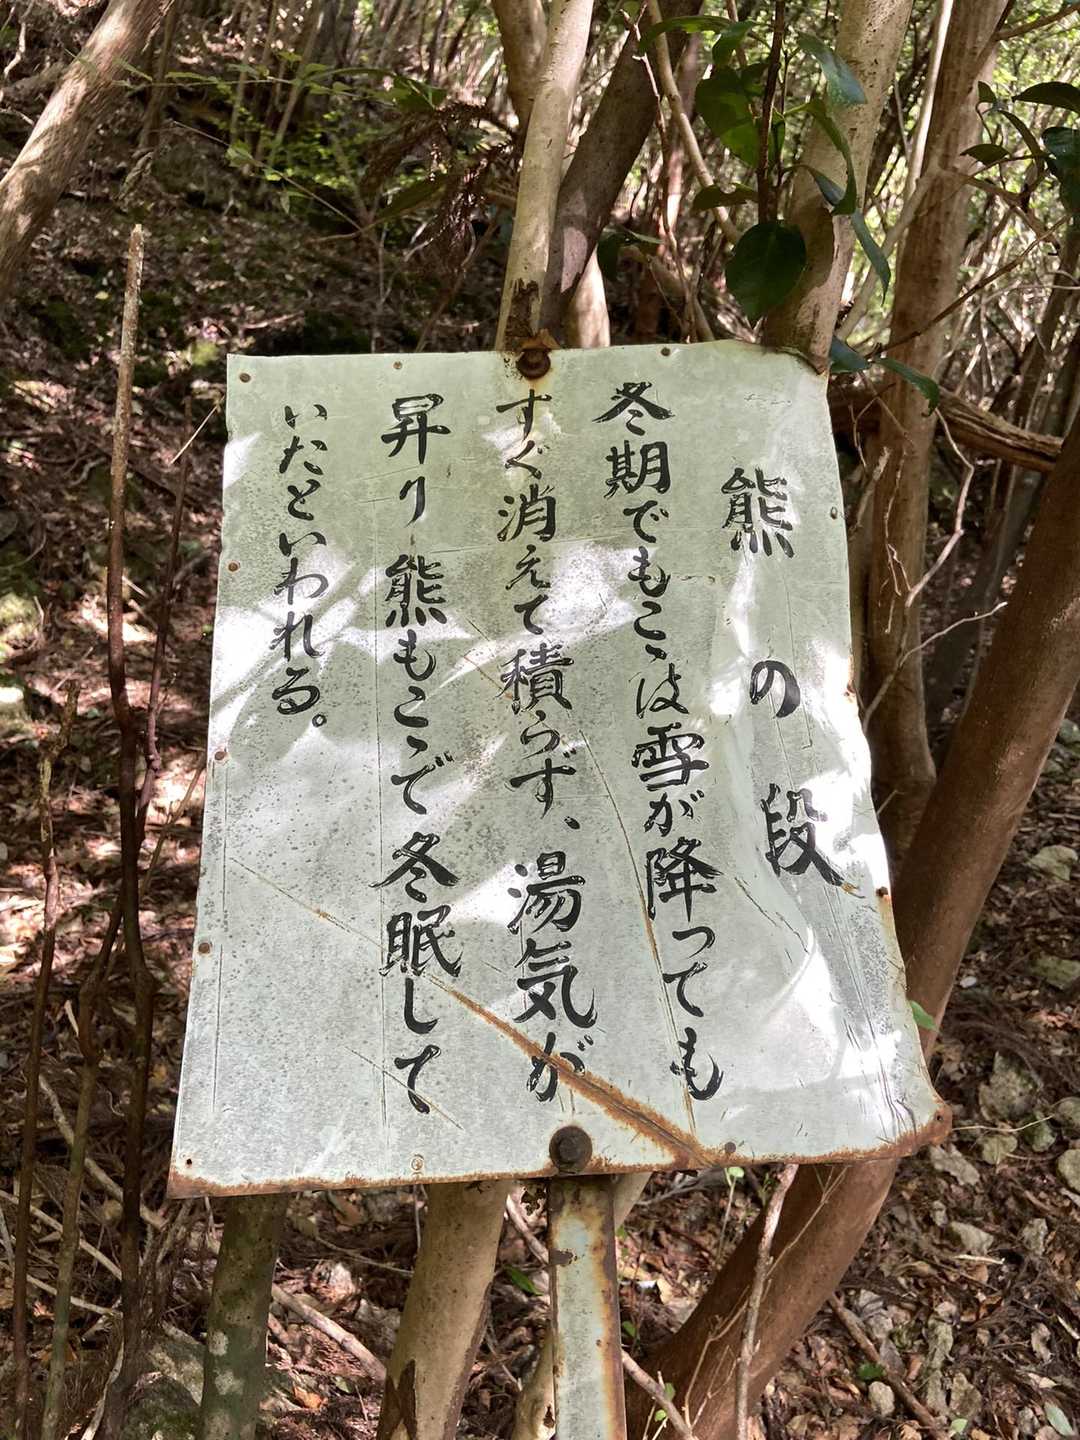 熊の段
冬期でもこゝは雪が降っても
すぐ消えて積らず、湯気が
昇り熊もこゝで冬眠して
いたといわれる。